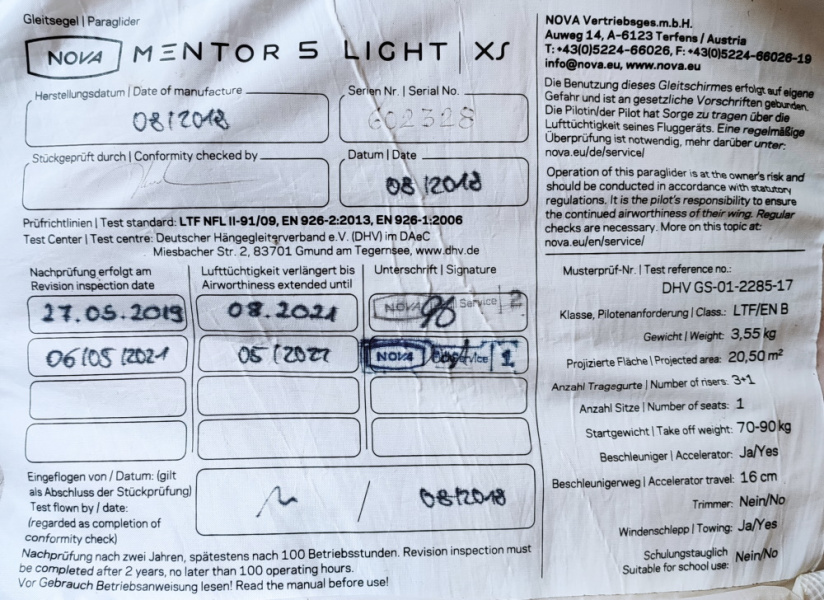 Gleitsegel | Paraglider
NOVA MENTOR 5 LIGHT | XS
Herstellungsdatum | Date of manufacture
08/2018
Serien Nr. | Serial No.
602328
Stückgeprüft durch | Conformity checked by
Datum | Date
08/2018
Prüfrichtlinien | Test standard: LTF NFL II-91/09, EN 926-2:2013, EN 926-1:2006
Test Center | Test centre: Deutscher Hängegleiterverband e.V. (DHV) im DAeC
Miesbacher Str. 2, 83701 Gmund am Tegernsee, www.dhv.de
Nachprüfung erfolgt am
Revision inspection date
Lufttüchtigkeit verlängert bis
Airworthiness extended until
Unterschrift | Signature
27.05.2019
08.2021
NOVA Service 2
06/05/2021
NOVA Service 1
Eingeflogen von / Datum: (gilt
als Abschluss der Stückprüfung)
Test flown by / date:
(regarded as completion of
conformity check)
/ 08/2018
Nachprüfung nach zwei Jahren, spätestens nach 100 Betriebsstunden. Revision inspection must
be completed after 2 years, no later than 100 operating hours.
Vor Gebrauch Betriebsanweisung lesen! Read the manual before use!
NOVA Vertriebsges.m.b.H.
Auweg 14, A-6123 Terfens / Austria
T:+43(0)5224-66026, F: +43(0)5224-66026-19
info@nova.eu, www.nova.eu
Die Benutzung dieses Gleitschirmes erfolgt auf eigene
Gefahr und ist an gesetzliche Vorschriften gebunden.
Die Pilotin/der Pilot hat Sorge zu tragen über die
Lufttüchtigkeit seines Fluggeräts. Eine regelmäßige
Überprüfung ist notwendig, mehr darüber unter:
nova.eu/de/service/
Operation of this paraglider is at the owner's risk and
should be conducted in accordance with statutory
regulations. It is the pilot's responsibility to ensure
the continued airworthiness of their wing. Regular
checks are necessary. More on this topic at:
nova.eu/en/service/
Musterprüf-Nr. | Test reference no.:
DHV GS-01-2285-17
Klasse, Pilotenanforderung | Class.: LTF/EN B
Gewicht | Weight: 3,55 kg
Projizierte Fläche | Projected area: 20,50 m²
Anzahl Tragegurte | Number of risers: 3+1
Anzahl Sitze | Number of seats: 1
Startgewicht | Take off weight: 70-90 kg
Beschleuniger | Accelerator: Ja/Yes
Beschleunigerweg | Accelerator travel: 16 cm
Trimmer: Nein/No
Windenschlepp | Towing: Ja/Yes
Schulungstauglich
Suitable for school use: Nein/No